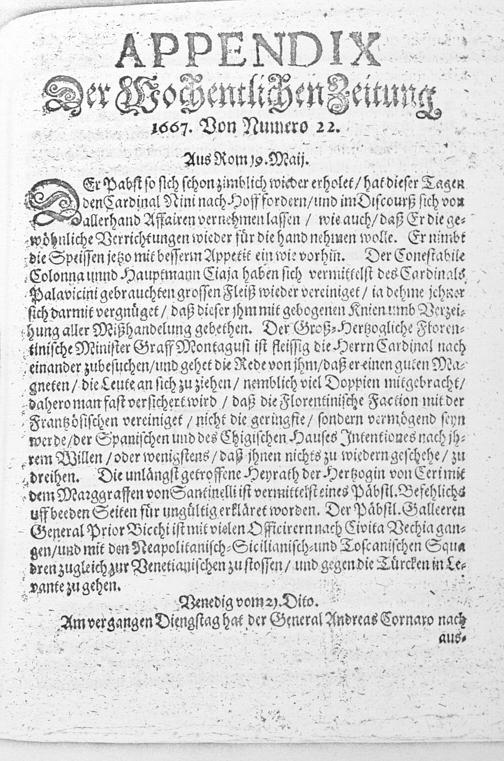 APPENDIX
Der Wochentlichen Zeitung
1667. Von Numero 22.
Aus Rom 19. Maij.
DEr Pabst so sich schon zimblich wieder erholet / hat dieser Tagen
den Cardinal Nini nach Hoff fordern / und im Discourß sich von
allerhand Affairen vernehmen lassen / wie auch / daß Er die ge-
wöhnliche Verrichtungen wieder für die hand nehmen wolle. Er nimbt
die Speissen jetzo mit besserm Appetit ein wie vorhin. Der Conestabile
Colonna unnd Hauptmann Ciaja haben sich vermittelst des Cardinals
Palavicini gebrauchten grossen Fleiß wieder vereiniget / in dehme jehner
sich darmit vergnüget / daß dieser jhm mit gebogenen Knien umb Verzei-
hung aller Mißhandelung gebethen. Der Groß-Hertzogliche Floren-
tinische Minister Graff Montaguti ist fleissig die Herrn Cardinal nach
einander zubesuchen / und gehet die Rede von jhm / daß er einen guten Ma-
gneten / die Leute an sich zu ziehen / nemblich viel Doppien mitgebracht /
dahero man fast versichert wird / daß die Florentinische Faction mit der
Frantzösischen vereiniget / nicht die geringste / sondern vermögend seyn
werde / der Spanischen und des Chigischen Hauses Intentiones nach jh-
rem Willen / oder wenigstens / daß jhnen nichts zu wiedern geschehe / zu
dreihen. Die unlängst getroffene Heyrath der Hertzogin von Ceri mit
dem Marggraffen von Santinelli ist vermittelst eines Päbstl. Befehlichs
uff beeden Seiten für ungültig erkläret worden. Der Päbstl. Galleeren
General Prior Bicchi ist mit vielen Officirern nach Civita Vechia gan-
gen / und mit den Neapolitanisch-Sicilianisch- und Toscanischen Squa
dren zugleich zur Venetianischen zu stossen / und gegen die Türcken in Le-
vante zu gehen.
Venedig vom 21. Dito.
Am vergangen Dienstag hat der General Andreas Cornaro nach
aus-